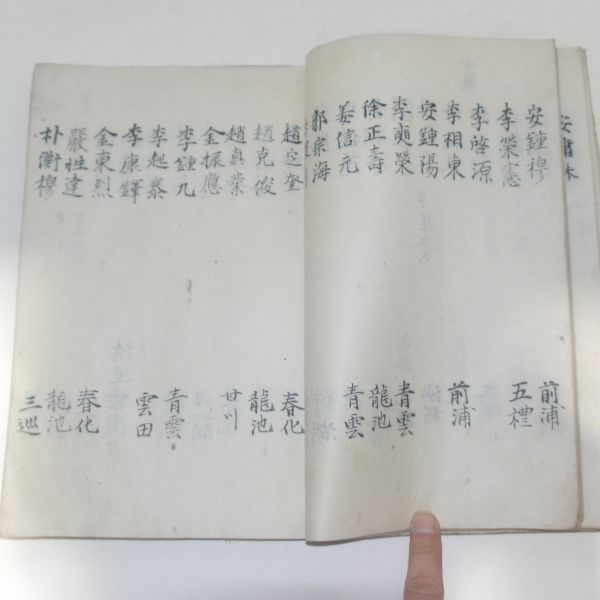 安鍾穆 前浦
李榮憲 五禮
李啓源
李相東 前浦
安鍾陽
李奭榮 青雲
徐正壽 龍池
姜信元 青雲
郭宗海
趙定奎 春化
趙克俊 龍池
趙眞業 甘川
金振應
李鍾九 青雲
李起泰 雲田
李康鐸
金東烈 春化
嚴性達 龍池
朴衡穆 三巡